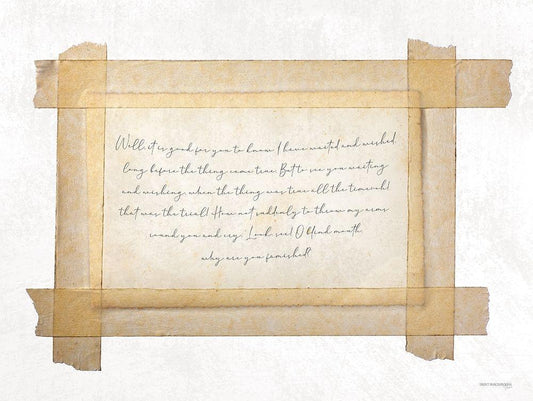 Well, it is good for you to know I have waited and wished
long before the thing came true. But to see you waiting
and wishing, when the thing was true all the time oh!
that was the trial! How not suddenly to throw my arms
round you and cry, 'Look, see! O blind mouth
why are you famished?'